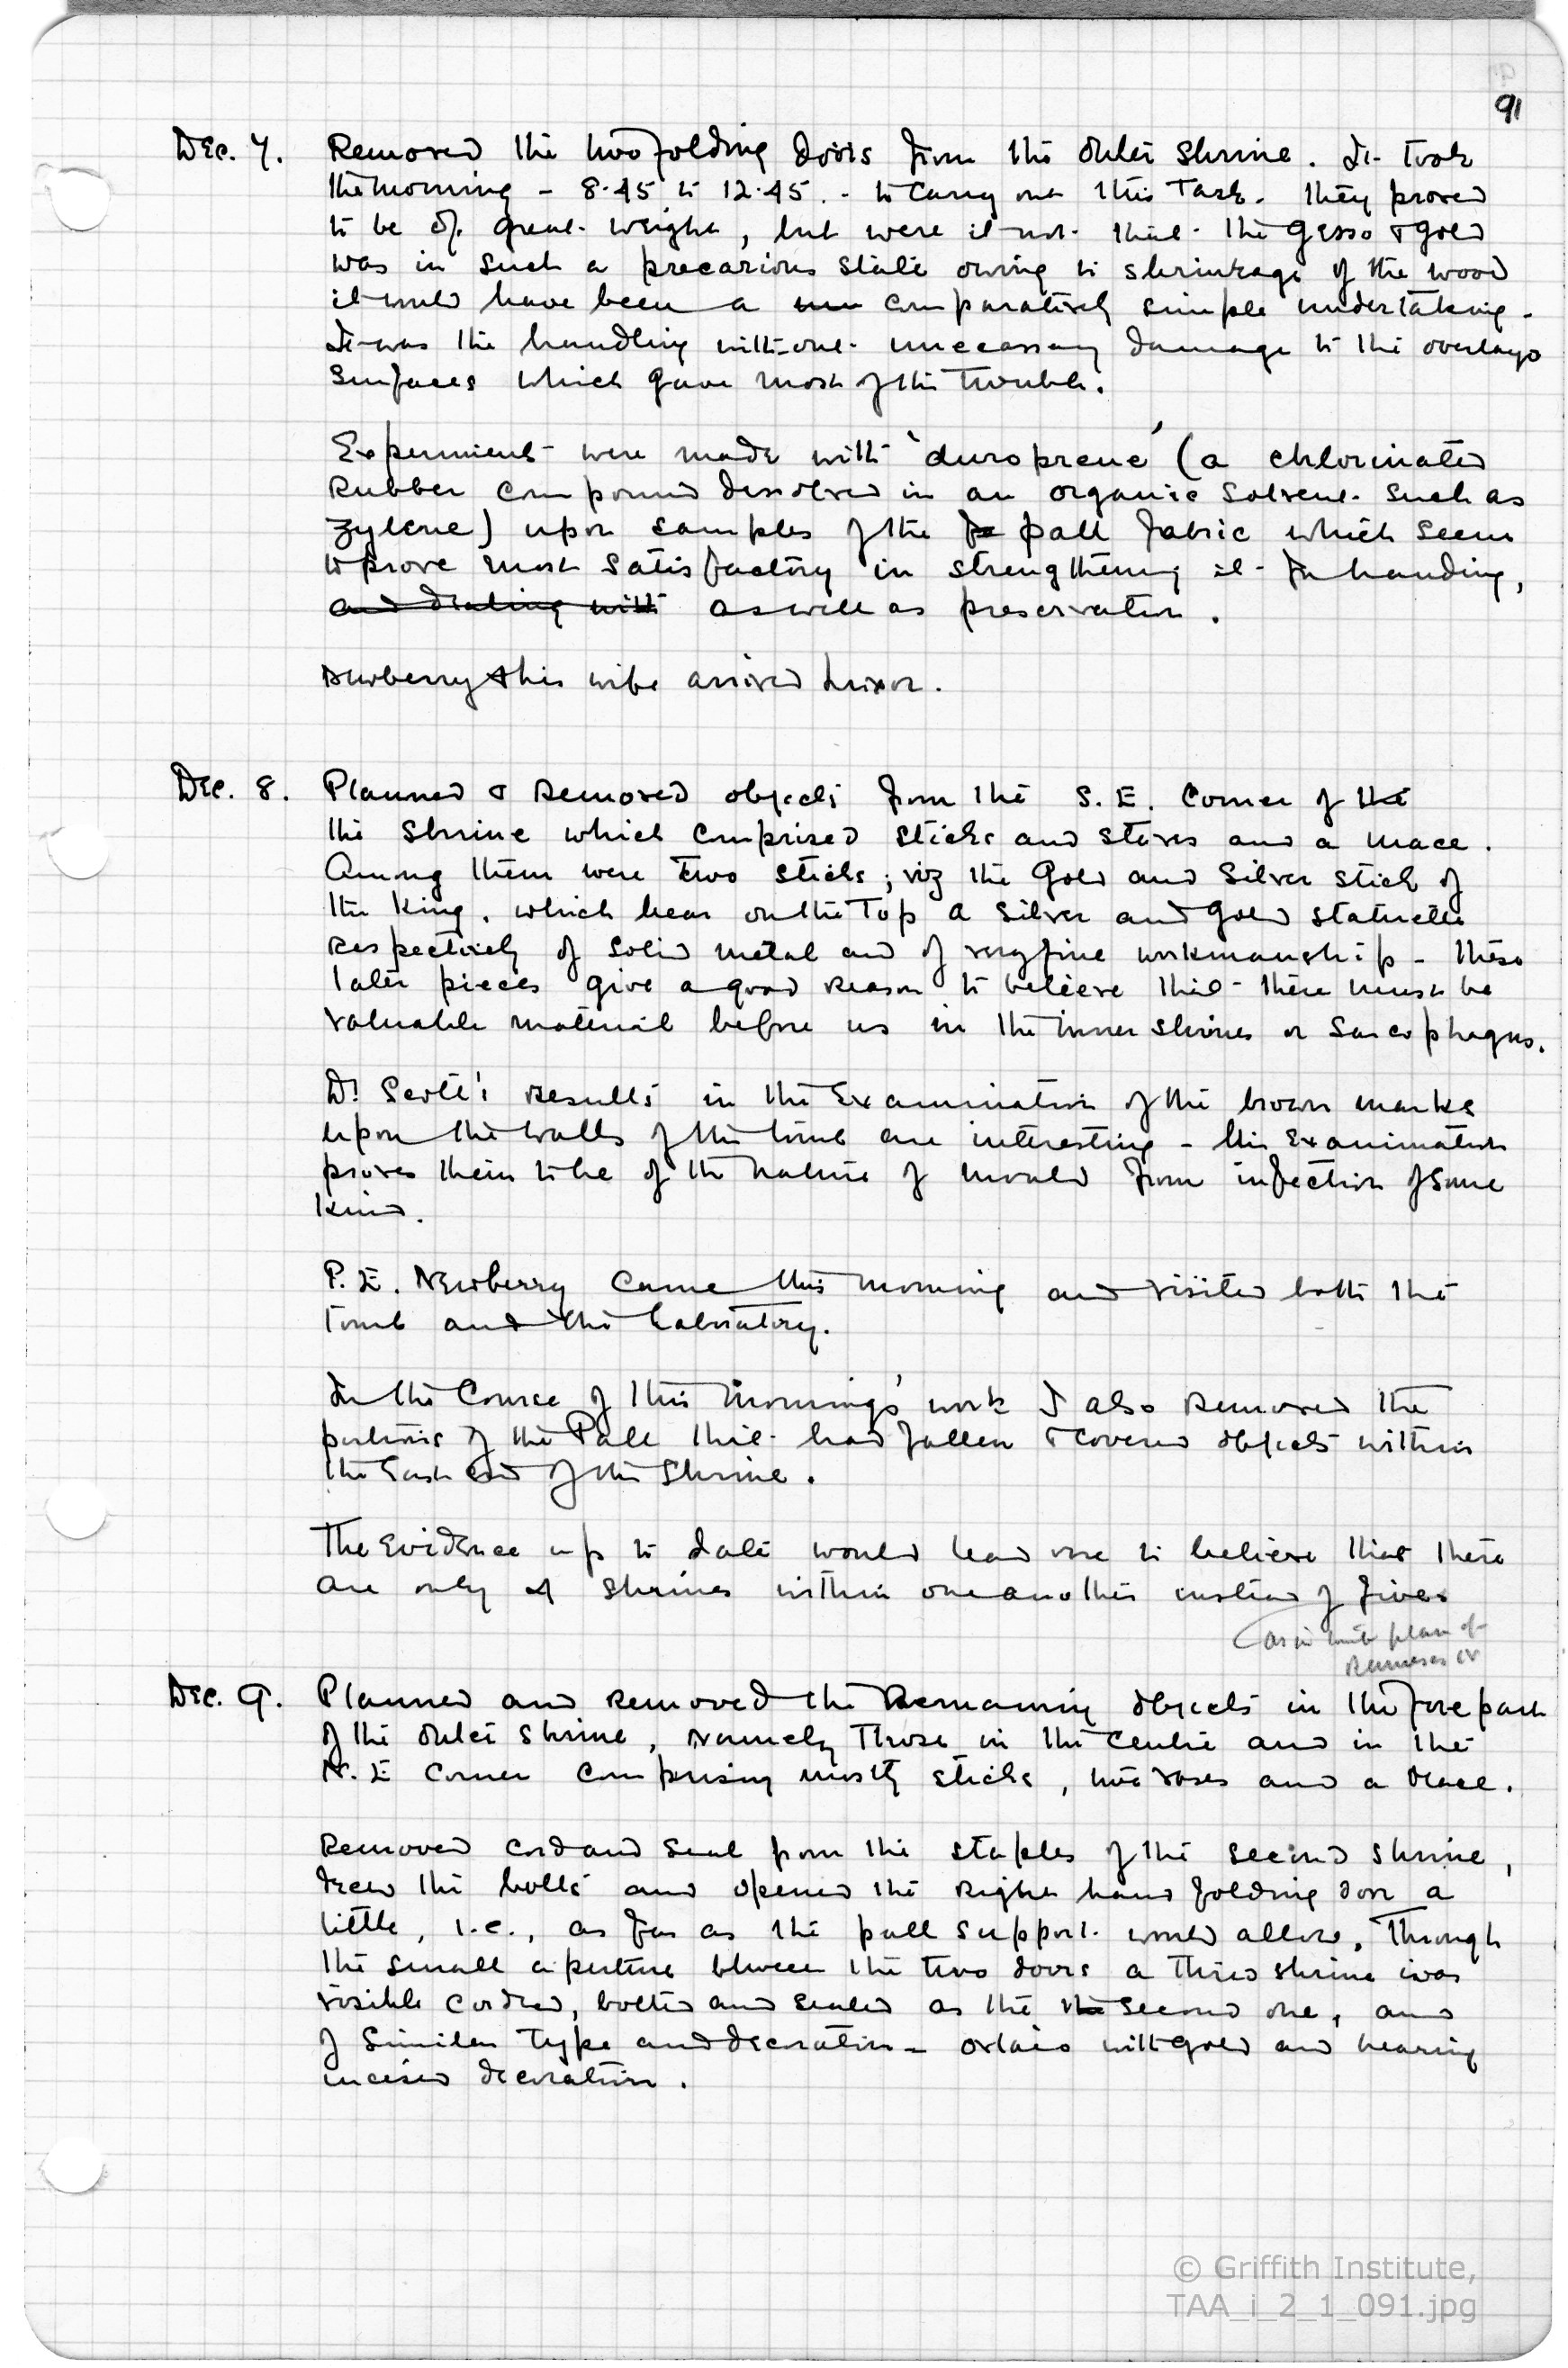 91
Dec. 7. Removed the two folding doors from the outer shrine. It took
the morning - 8.45 to 12.45. - to carry out this task. They proved
to be of great weight, but were it not that the gesso & gold
was in such a precarious state owing to shrinkage of the wood
it would have been a comparatively simple undertaking.
It was the handling without unnecessary damage to the overlayd
surfaces which gave most of the trouble.
Experiments were made with 'duroprene' (a chlorinated
Rubber compound dissolved in an organic solvent such as
zylene) upon samples of the pall fabric which seem
to prove most satisfactory in strengthening it for handing,
and dealing with as well as preservation.
Newberry & his wife arrived Luxor.
Dec. 8. Planned & Removed objects from the S.E. Corner of the
the shrine which comprised sticks and staves and a mace.
Among them were two sticks; viz the Gold and Silver stick of
the King, which bear on the top a silver and gold statuette
respectively of solid metal and of very fine workmanship - these
later pieces give a good reason to believe that there must be
valuable material before us in the inner shrines or Sarcophagus.
Dr Scott's results in the Examination of the brown marks
upon the walls of the tomb are interesting - his Examination
proves them to be of the nature of mould from infection of some
kind.
P. E. Newberry came this morning and visited both the
Tomb and the laboratory.
In the Course of this morning's work I also removed the
portions of the Pall that had fallen & covered objects within
the East End of the Shrine.
The Evidence up to date would lead one to believe that there
are only 4 shrines within one another instead of five
(as in tomb plan of
Rameses IV
Dec. 9. Planned and removed the Remaining objects in the fore part
of the outer shrine, namely those in the centre and in the
N.E Corner comprising mostly sticks, two vases and a mace.
Removed cord and seal from the staples of the second shrine,
drew the bolts and opened the right hand folding door a
little, i.e., as far as the pall support would allow. Through
the small aperture between the two doors a third shrine was
visible corded, bolted and sealed as the the second one, and
of similar type and decoration - overlaid with gold and bearing
incised decoration.
© Griffith Institute,
TAA_i_2_1_091.jpg